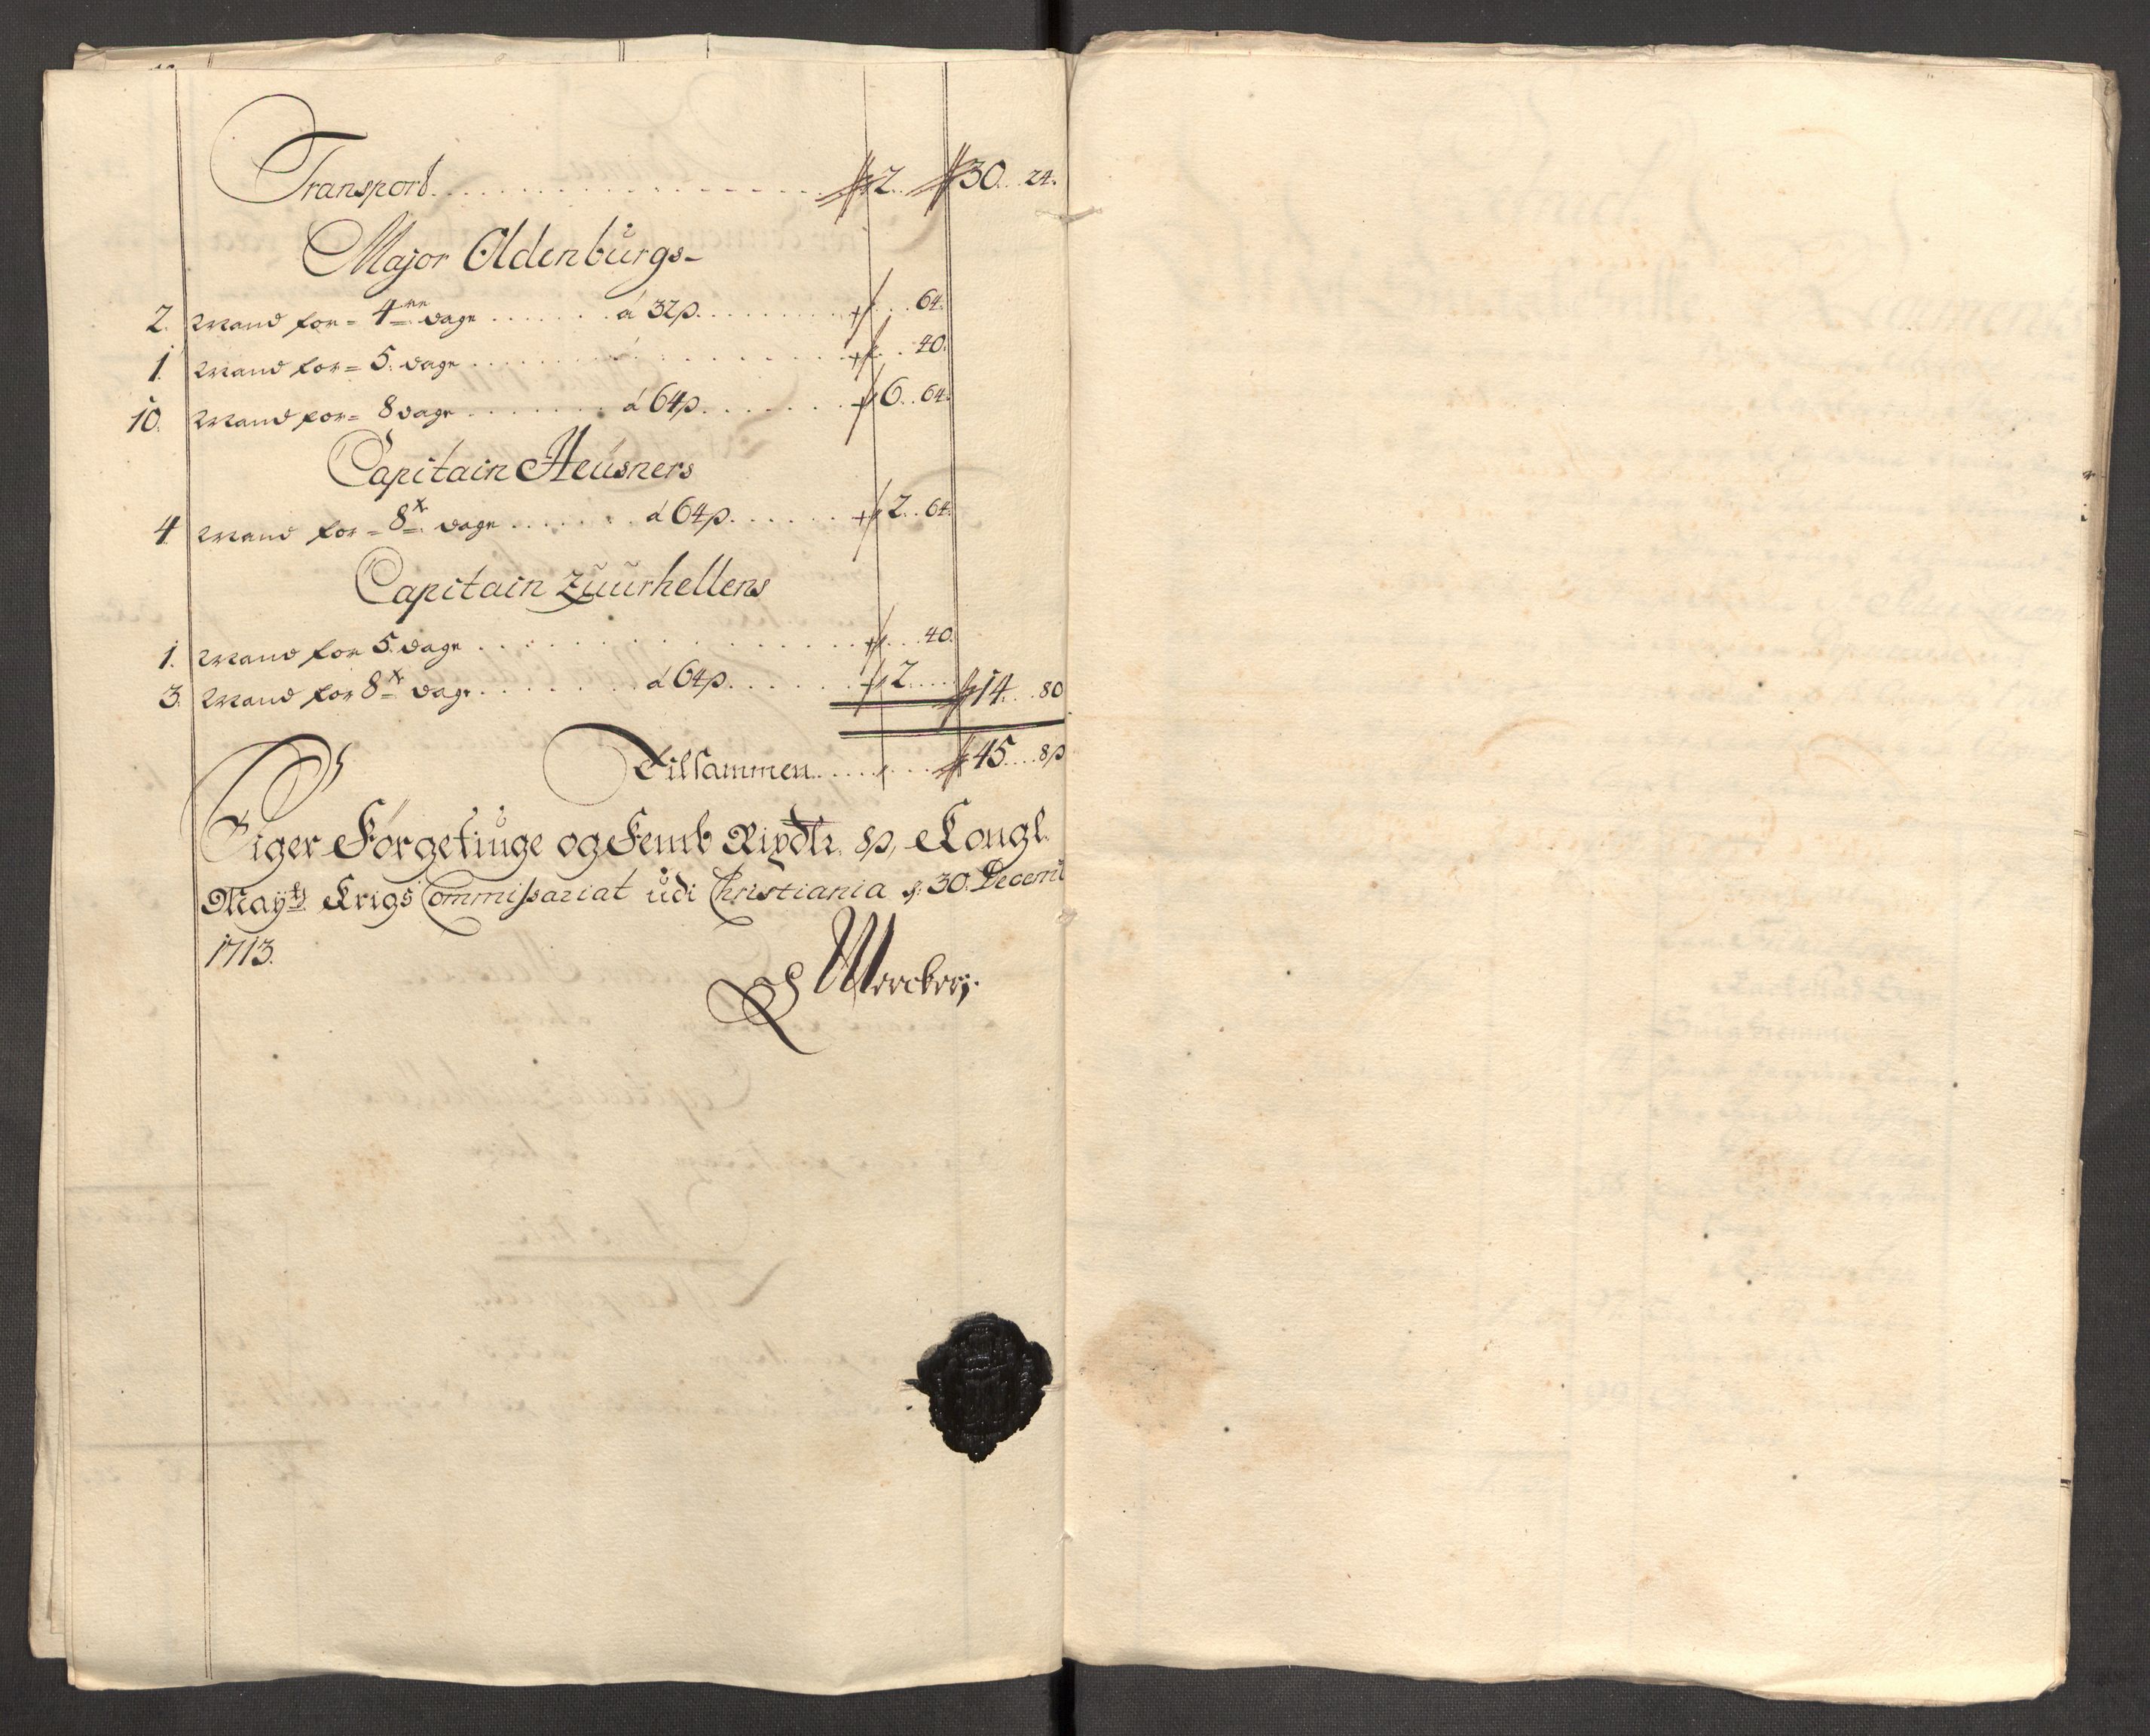 Transport. 2. 30. 24.
Major Oldenbürgs-
2. Mand for= 4re dage á 32ß. 64.
1. Mand for= 5. dage 40.
10. Mand for= 8 dage á 64ß. 6. 64.
Capitain Heüsners
4 Mand for= 8te dage á 64ß. 2. 64.
Capitain Züürhellens
1. Mand for 5. dage 40.
3. Mand for 8te dage á 64ß. 2. 14. 80
Tilsammen 45. 8ß
Siger Førgetiuge og Femb Rixdlr. 8ß, Kongl.
Mayts Krigs Commissariat üdi Christiania d: 30. Decemb
1713.
Wercker;